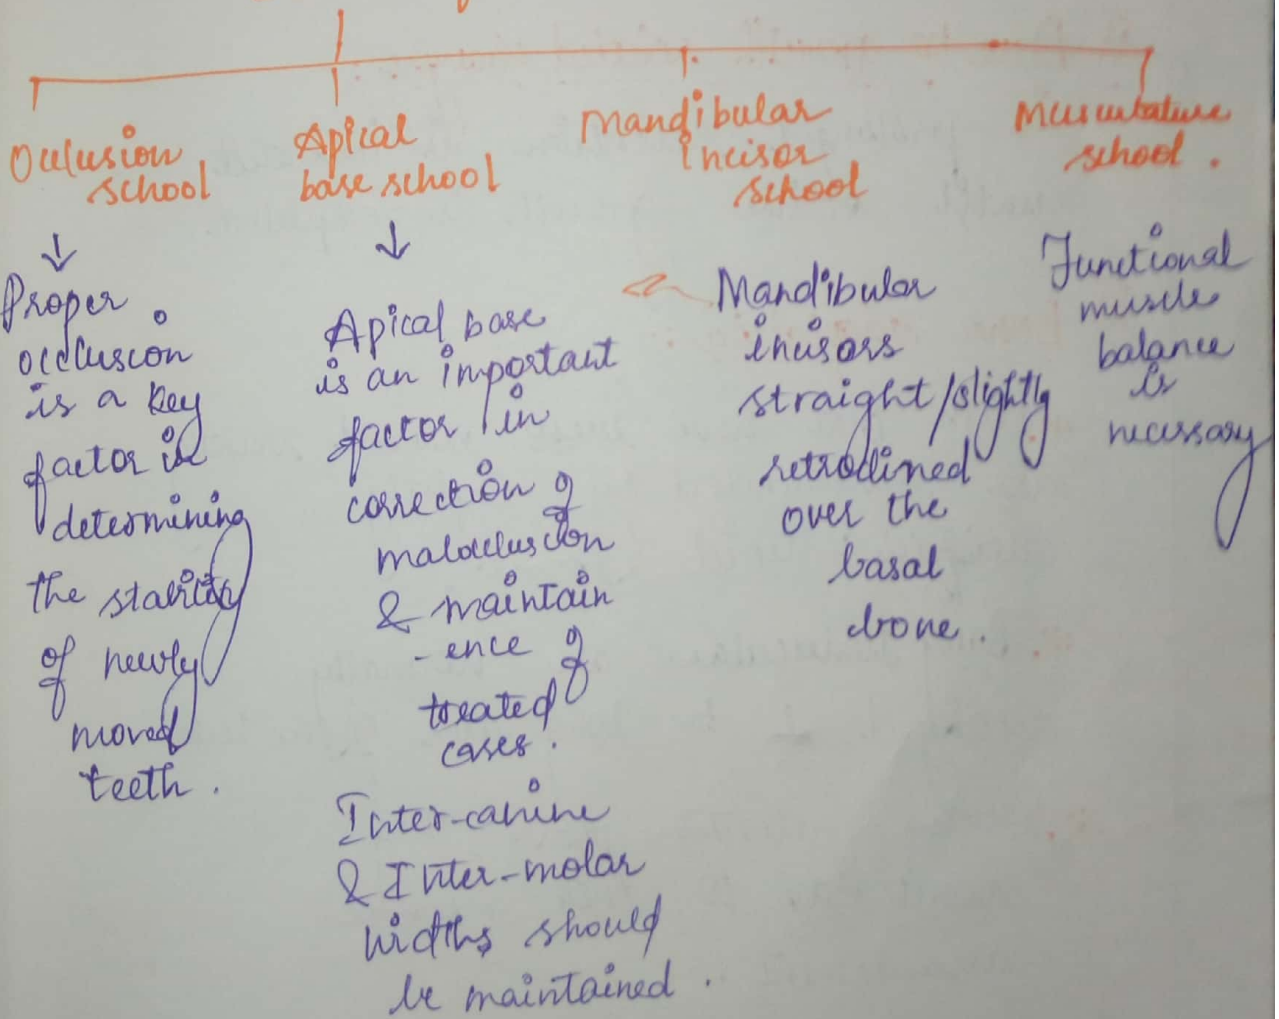 Occlusion
school
Apical
base school
Mandibular
incisor
school
Musculature
school.
Proper
occlusion
is a key
factor in
determining
the stability
of newly
moved
teeth.
Apical base
is an important
factor in
correction of
malocclusion
& maintain
-ence of
treated
cases.
Inter-canine
& Inter-molar
widths should
be maintained.
Mandibular
incisors
straight/slightly
retroclined
over the
basal
bone.
Functional
muscle
balance
is
necessary